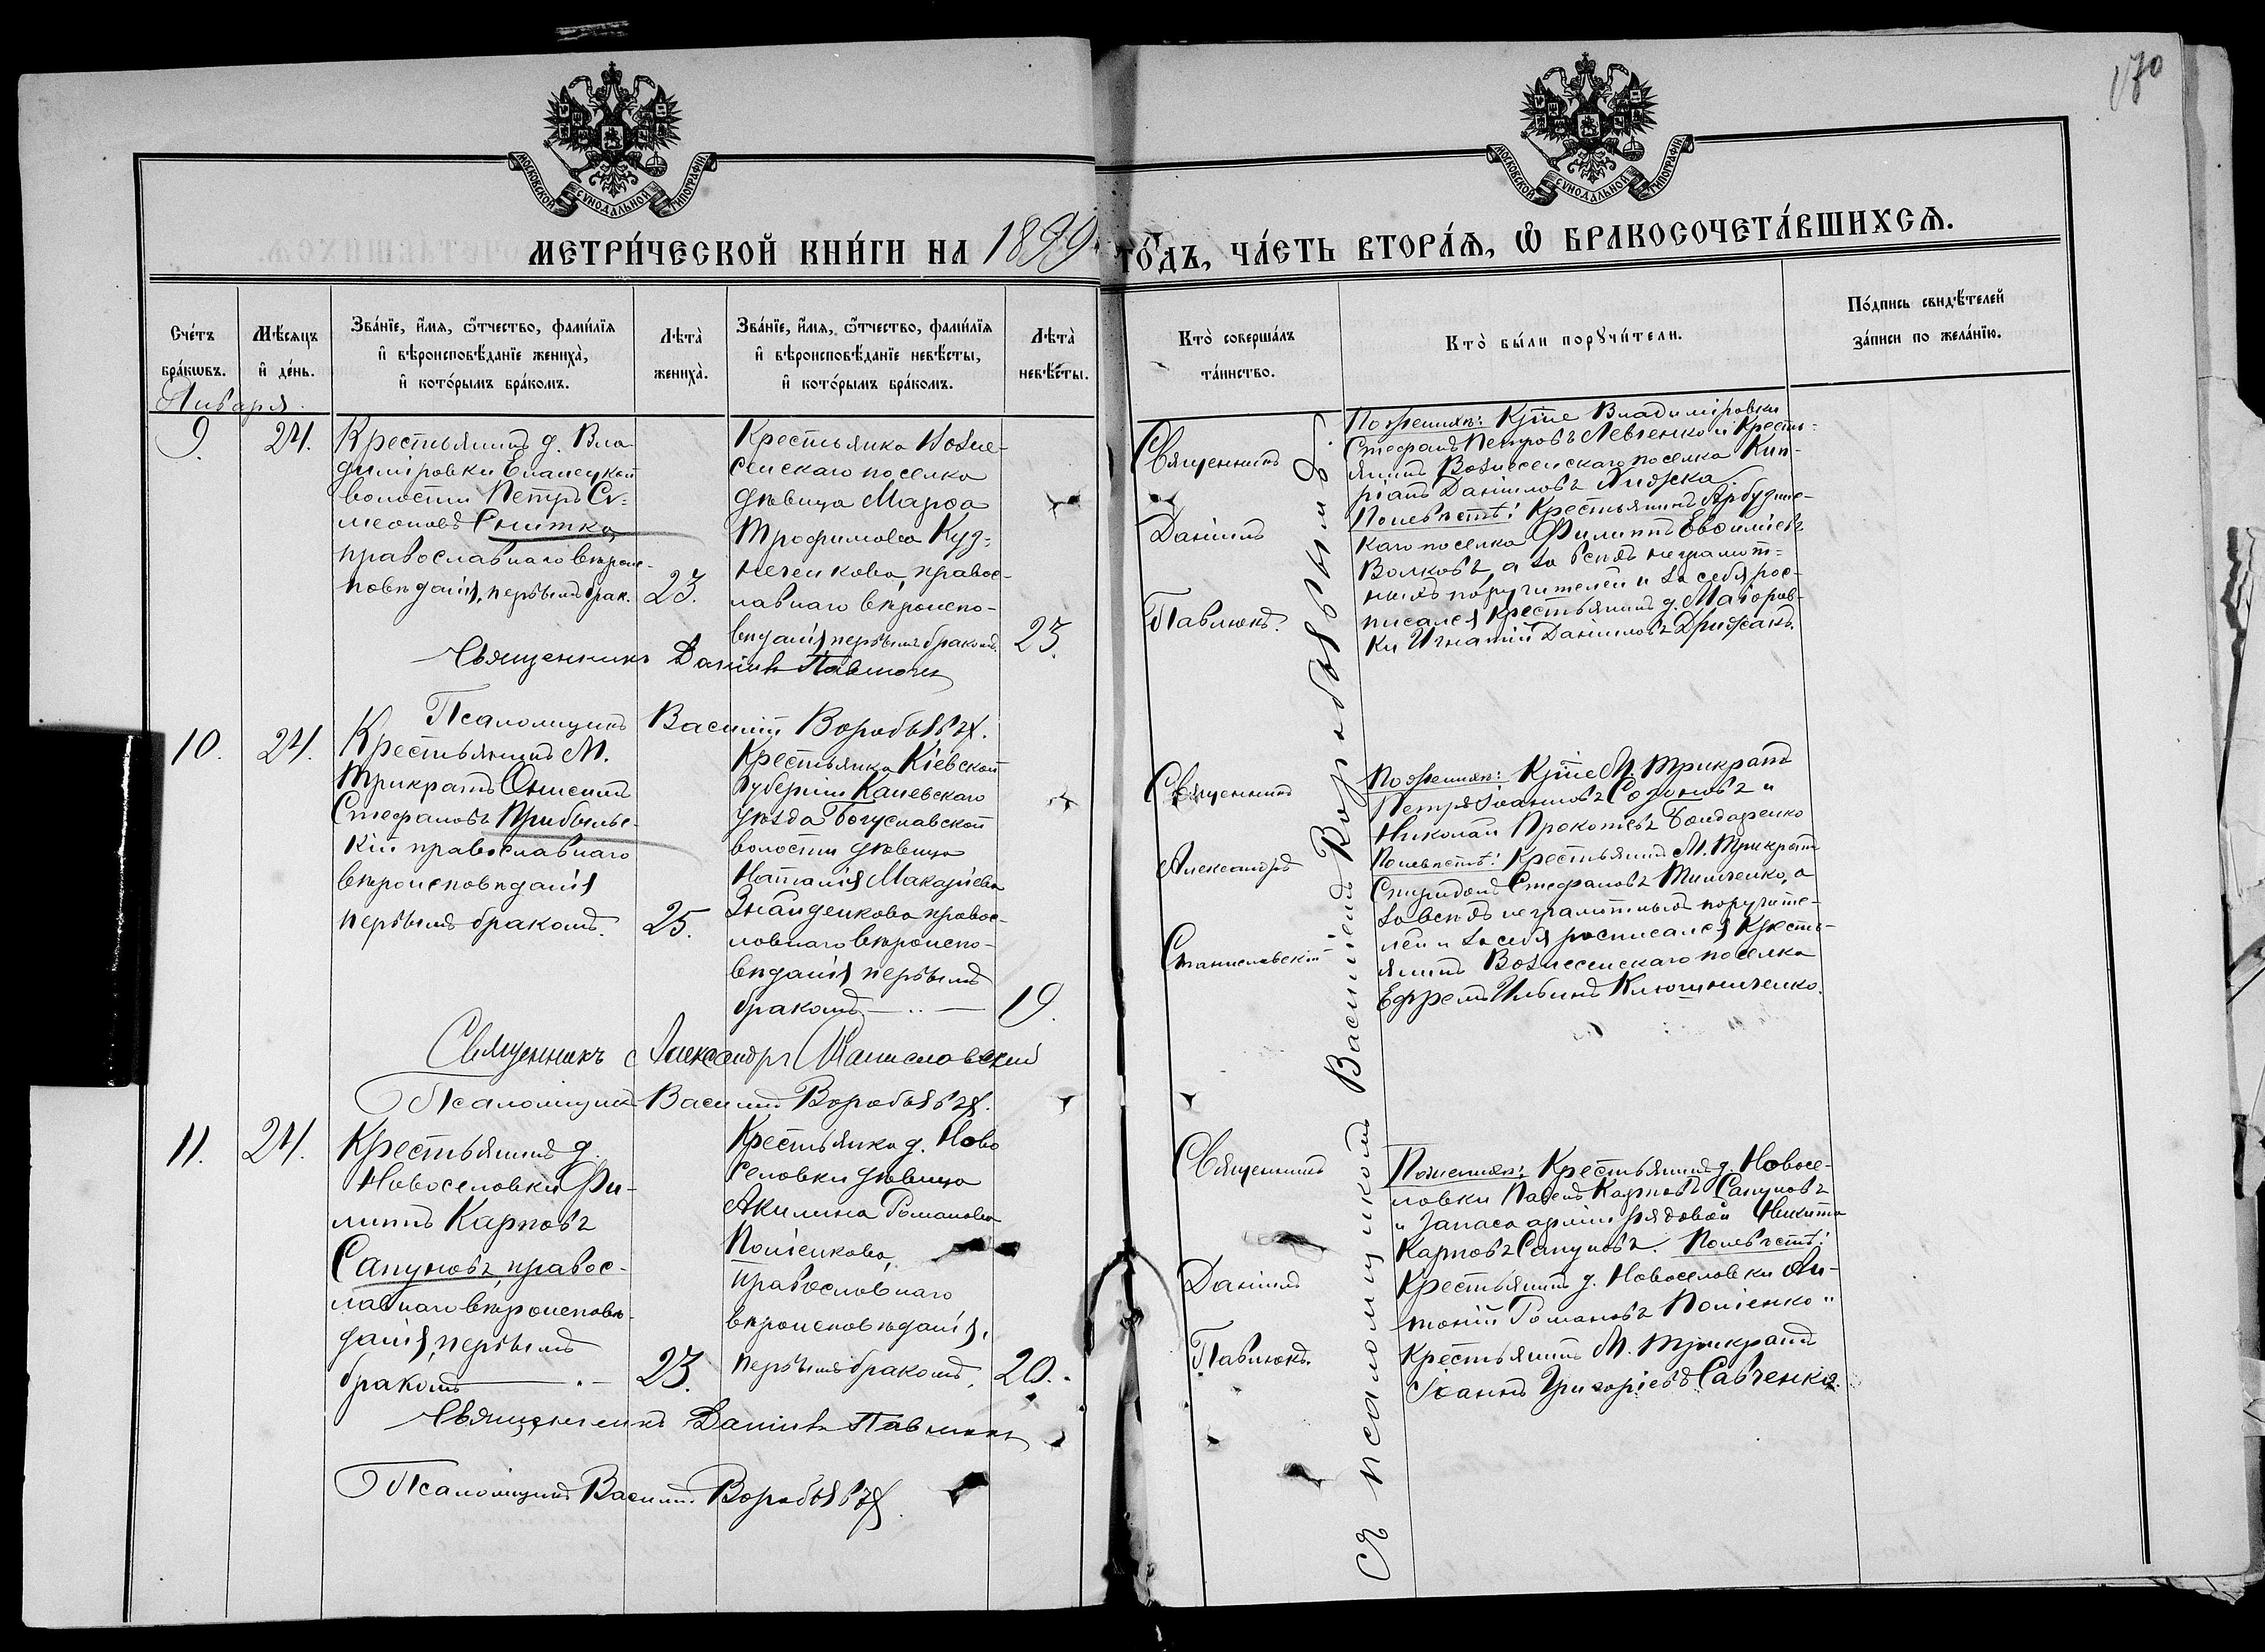 170
МОСКОВСКОЙ СУНОДАЛЬНОЙ ТИПОГРАФІИ
МОСКОВСКОЙ СУНОДАЛЬНОЙ ТИПОГРАФІИ
МЕТРИ́ЧЕСКОЙ КНИ́ГИ НА 1899
ГО́ДЪ, ЧА́СТЬ ВТОРА́Ѧ, Ѽ БРАКОСОЧЕТА́ВШИХСѦ.
Сче́тъ
бра́кѡвъ.
Мѣ́сяцъ
и҆ де́нь.
Зва́нїе, и҆́мя, ѻ҆́тчество, фами́лїя
и҆ вѣроисповѣ́данїе жениха̀,
и҆ кото́рымъ бра́комъ.
Лѣта̀
жениха̀.
Зва́нїе, и҆́мя, ѻ҆́тчество, фами́лїя
и҆ вѣроисповѣ́данїе невѣ́сты,
и҆ кото́рымъ бра́комъ.
Лѣта̀
невѣ́сты.
Кто̀ соверша́лъ
та́инство.
Кто̀ бы́ли порꙋчи́тели.
По́дпись свидѣ́телей
за́писи по жела́нїю.
Января
9.
24.
Крестьянинъ д. Вла-
диміровки Еланецкой
волости Петръ Си-
меоновъ Снитко,
православнаго вѣроис-
повѣданія, первымъ брак.
23.
Крестьянка Возне-
сенскаго поселка
дѣвица Марѳа
Трофимова Куз-
неченкова, правос-
лавнаго вѣроиспо-
вѣданія, первымъ бракомъ.
23.
Священникъ
Даніилъ
Павлюкъ.
По женихѣ: Кр-не Владиміровки
Стефанъ Петровъ Левченко и Кресть-
янинъ Вознесенскаго поселка Кип-
ріанъ Даніиловъ
По невѣстѣ: Крестьянинъ Арбузинс-
каго поселка Филиппъ Евфиміевъ
Волковъ, а за всѣхъ неграмот-
ныхъ поручителей и за себя рос-
писался Крестьянинъ д. Маіоров-
ки Игнатій Даніиловъ Дрижакъ.
Священникъ Даніилъ Павлюкъ
Псаломщикъ Василій Воробьевъ.
10.
24.
Крестьянинъ М.
Трикратъ Онисимъ
Стефановъ Прибыльс-
кій православнаго
вѣроисповѣданія
первымъ бракомъ.
25.
Крестьянка Кіевской
Губерніи Каневскаго
уѣзда Богуславской
волости дѣвица
Наталія Макаріева
Знайденкова правос-
лавнаго вѣроиспо-
вѣданія первымъ
бракомъ
19.
Священникъ
Александръ
Станиславскій
По женихѣ: Кр-не М. Трикратъ
Петръ Іоанновъ Созоновъ и
Николай Прокопіевъ Бондаренко
По невѣстѣ: Крестьянинъ М. Трикратъ
Спиридонъ Стефановъ Тимченко, а
за всѣхъ неграмотныхъ поручите-
лей и за себя росписался Кресть-
янинъ Вознесенскаго поселка
Ефремъ Ильинъ Ключниченко.
Священникъ Александръ Станиславскій
Псаломщикъ Василій Воробьевъ.
11.
24.
Крестьянинъ д.
Новоселовки Фи-
липпъ Карповъ
Сапуновъ, правос-
лавнаго вѣроисповѣ-
данія, первымъ
бракомъ
23.
Крестьянка д. Ново
селовки дѣвица
Акилина Романова
православнаго
вѣроисповѣданія,
первымъ бракомъ.
20.
Священникъ
Даніилъ
Павлюкъ.
По женихѣ: Крестьянинъ д. Новосе-
ловки Павелъ Карповъ Сапуновъ
и запаса арміи рядовой Никита
Карповъ Сапуновъ. По невѣстѣ:
Крестьянинъ д. Новоселовки Ан-
тоній Романовъ и
Крестьянинъ М. Трикратъ
Іоаннъ Григоріевъ Савченко.
Священникъ Даніилъ Павлюкъ
Псаломщикъ Василій Воробьевъ.
Съ псаломщикомъ Василіемъ Воробьевымъ.